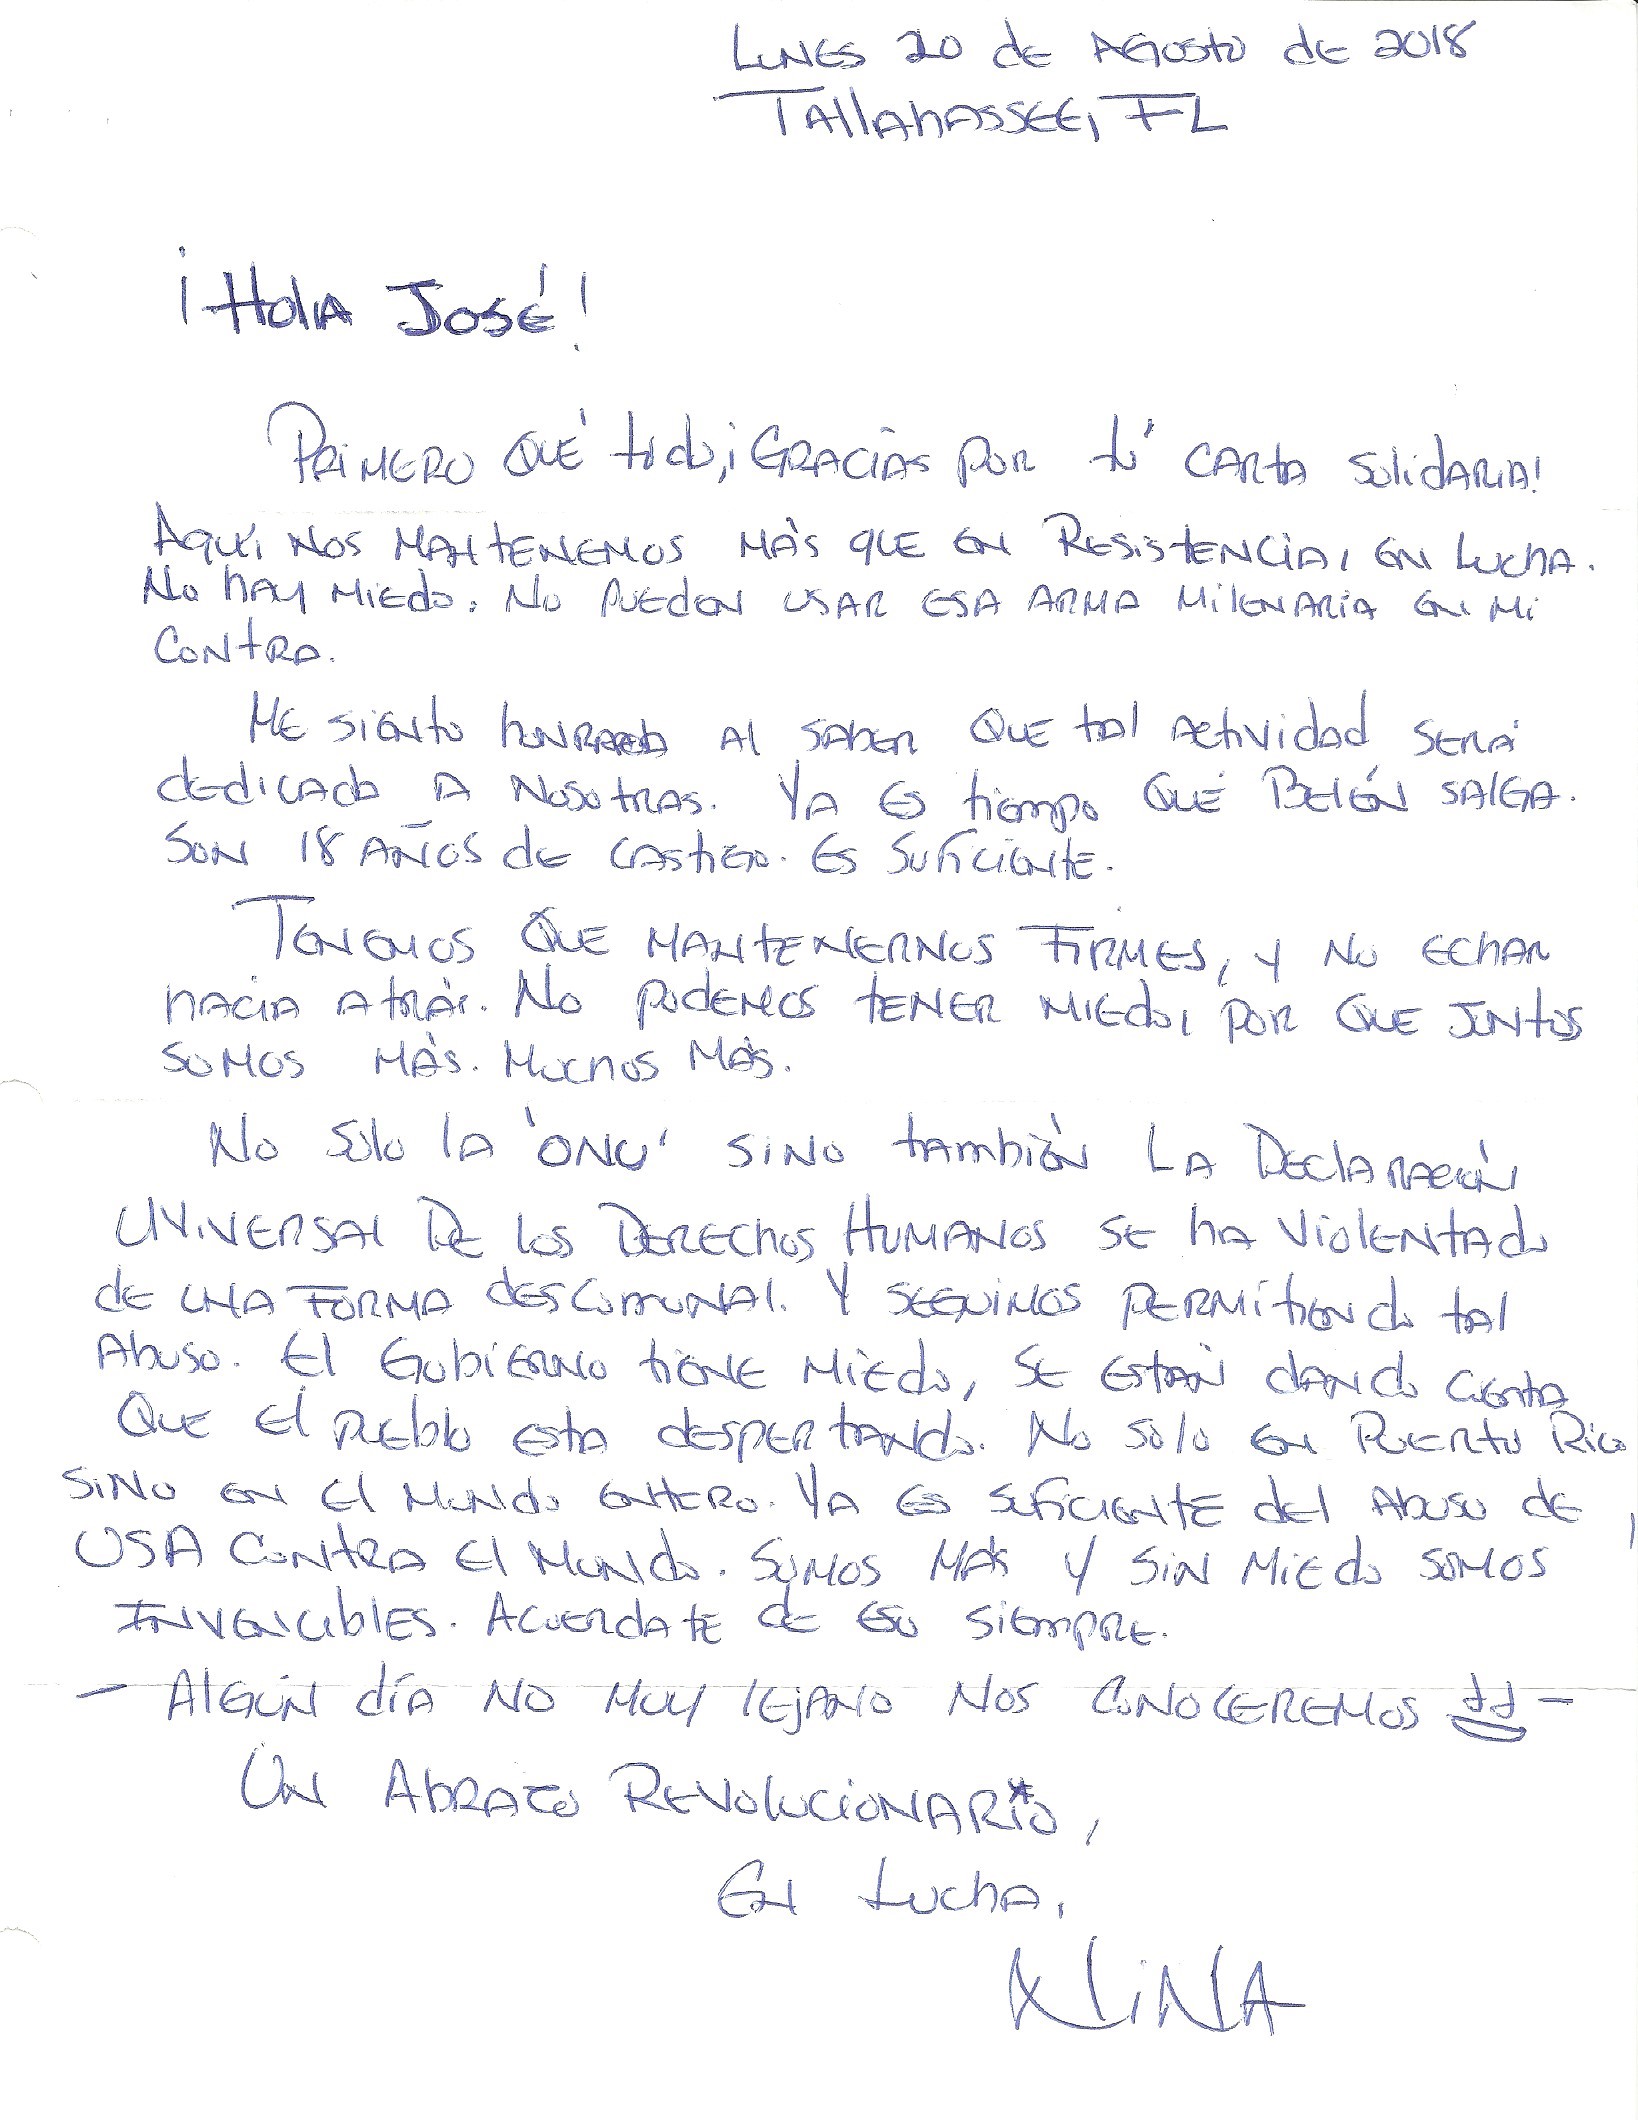 Lunes 20 de Agosto de 2018
Tallahassee, FL
¡Hola José!
Primero qué todo, ¡Gracias por tú carta solidaria!
Aquí nos mantenemos más que en Resistencia, en lucha.
No hay miedo. No pueden usar esa arma milenaria en mi
contra.
Me siento honrada al saber que tal actividad será
dedicada a nosotras. Ya es tiempo que Belén salga.
Son 18 años de castigo. Es suficiente.
Tenemos que mantenernos firmes, y no echar
hacia atrás. No podemos tener miedo, por que juntos
somos más. Muchos más.
No solo la 'ONU' sino también la Declaración
Universal de los Derechos Humanos se ha violentado
de una forma descomunal. Y seguimos permitiendo tal
Abuso. El Gobierno tiene miedo, se están dando cuenta
Que el pueblo esta despertando. No solo en Puerto Rico
sino en el mundo entero. Ya es suficiente del Abuso de
USA contra el mundo. Somos más y sin miedo somos
Invencibles. Acuerdate de eso siempre.
- Algún día no muy lejano nos conoceremos -
Un Abrazo Revolucionario,
En Lucha,
Alina